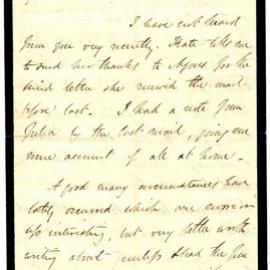 I have not heard
from you very recently. Kate tells me
to send her thanks to Agnes for the
kind letter she received the mail
before last. I had a note from
Julia by the last mail, giving me
some account of all at home.
A good many circumstances have
lately occurred which are
interesting, but very little worth
writing about unless I had the